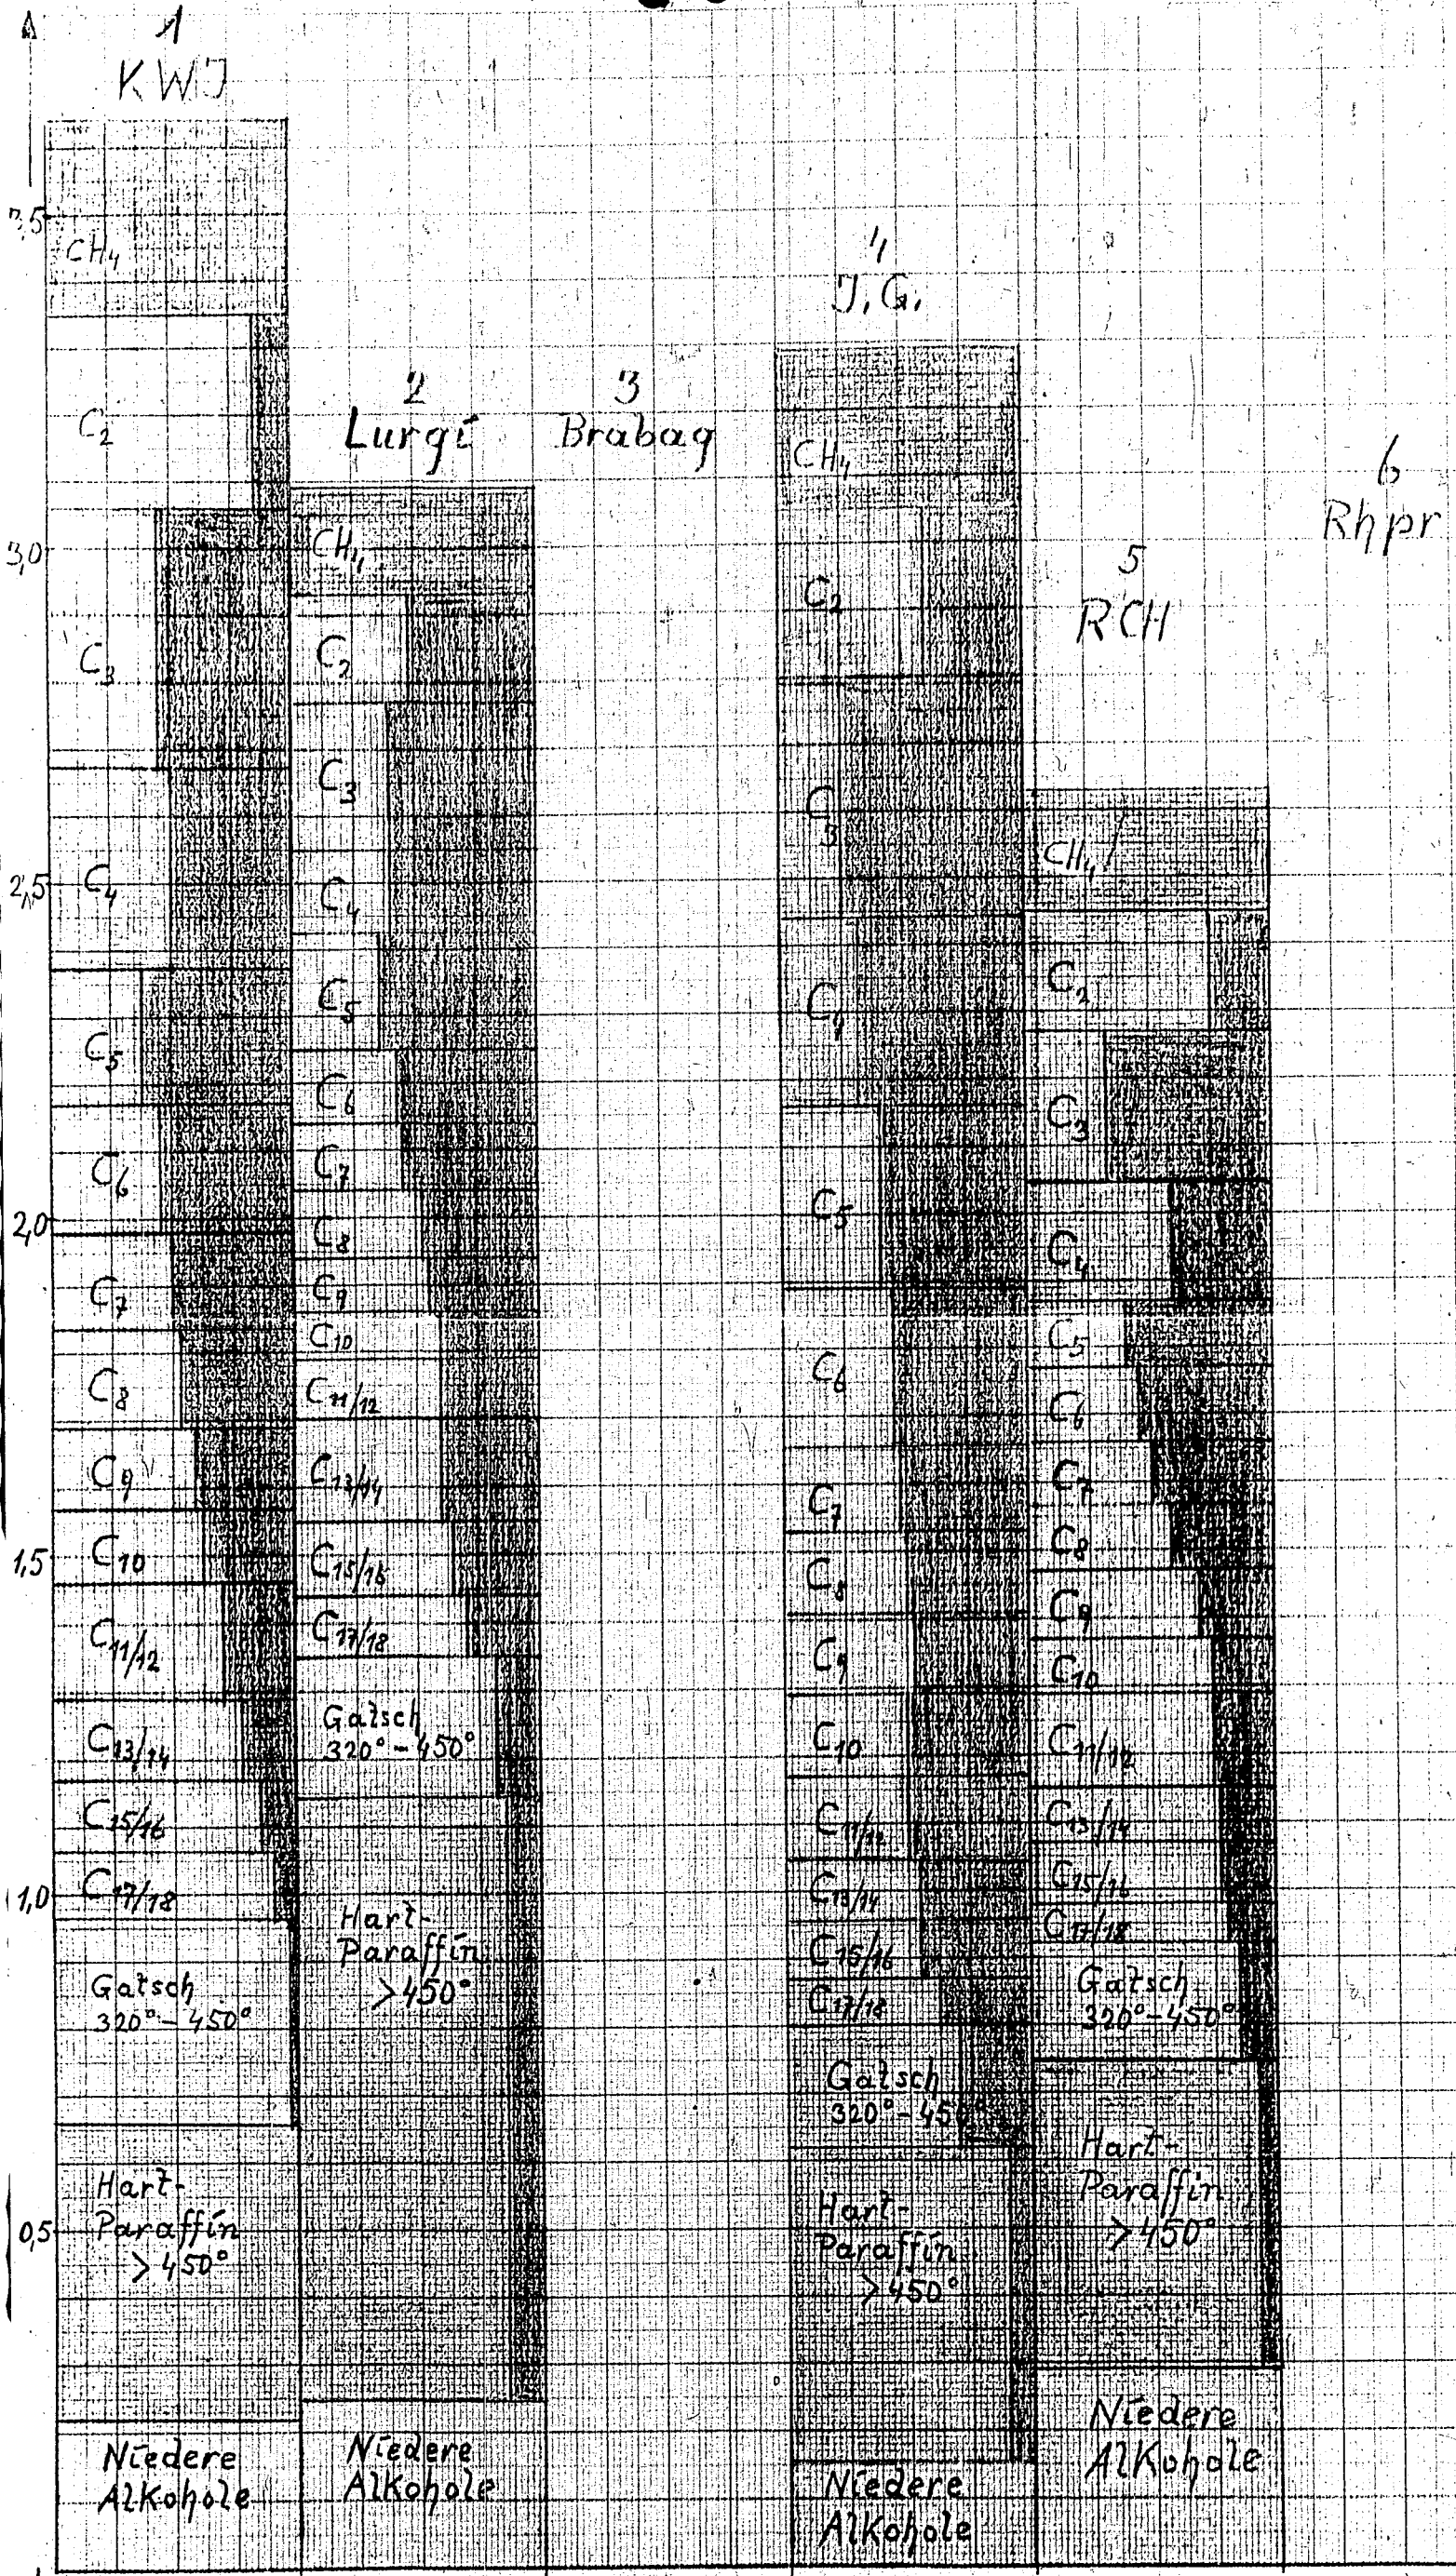 1
KWJ
3,5
3,0
2,5
2,0
1,5
1,0
0,5
CH₄
C₂
C₃
C₄
C₅
C₆
C₇
C₈
C₉
C₁₀
C₁₁/₁₂
C₁₃/₁₄
C₁₅/₁₆
C₁₇/₁₈
Gatsch
320°-450°
Hart-
Paraffin
>450°
Niedere
Alkohole
2
Lurgi
CH₄
C₂
C₃
C₄
C₅
C₆
C₇
C₈
C₉
C₁₀
C₁₁/₁₂
C₁₃/₁₄
C₁₅/₁₆
C₁₇/₁₈
Gatsch
320°-450°
Hart-
Paraffin
>450°
Niedere
Alkohole
3
Brabag
4
J.G.
CH₄
C₂
C₃
C₄
C₅
C₆
C₇
C₈
C₉
C₁₀
C₁₁/₁₂
C₁₃/₁₄
C₁₅/₁₆
C₁₇/₁₈
Gatsch
320°-450°
Hart-
Paraffin
>450°
Niedere
Alkohole
5
RCH
CH₄
C₂
C₃
C₄
C₅
C₆
C₇
C₈
C₉
C₁₀
C₁₁/₁₂
C₁₃/₁₄
C₁₅/₁₆
C₁₇/₁₈
Gatsch
320°-450°
Hart-
Paraffin
>450°
Niedere
Alkohole
6
Rhpr